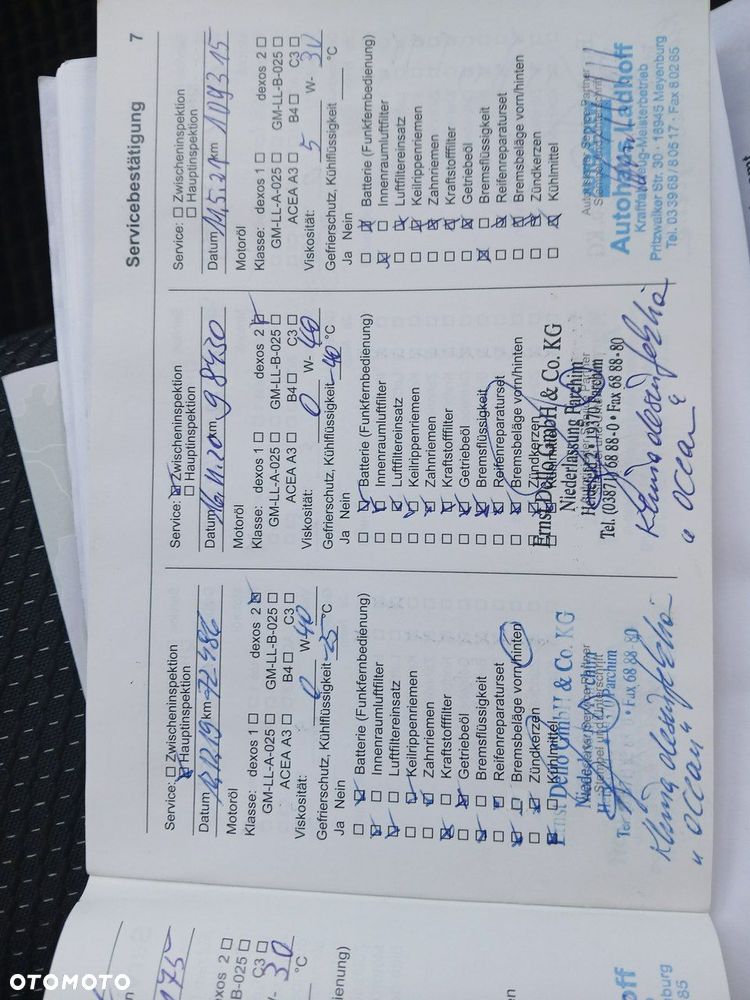 Servicebestätigung 7
Service: Zwischeninspektion
Hauptinspektion
Datum 12.12.19 km 72.486
Motoröl
Klasse: dexos 1 dexos 2
GM-LL-A-025 GM-LL-B-025
ACEA A3 B4 C3
Viskosität: 0 W- 40
Gefrierschutz, Kühlflüssigkeit °C
Ja Nein
Batterie (Funkfernbedienung)
Innenraumluftfilter
Luftfiltereinsatz
Keilrippenriemen
Zahnriemen
Kraftstofffilter
Getriebeöl
Bremsflüssigkeit
Reifenreparaturset
Bremsbeläge vorn/hinten
Zündkerzen
Kühlmittel
Ernst Dello GmbH & Co. KG
Parchim
Fax 68 88-80
"ocean"
Service: Zwischeninspektion
Hauptinspektion
Datum 16.11.20 km 98430
Motoröl
Klasse: dexos 1 dexos 2
GM-LL-A-025 GM-LL-B-025
ACEA A3 B4 C3
Viskosität: 0 W- 40
Gefrierschutz, Kühlflüssigkeit -40 °C
Ja Nein
Batterie (Funkfernbedienung)
Innenraumluftfilter
Luftfiltereinsatz
Keilrippenriemen
Zahnriemen
Kraftstofffilter
Getriebeöl
Bremsflüssigkeit
Reifenreparaturset
Bremsbeläge vorn/hinten
Zündkerzen
Ernst Dello GmbH & Co. KG
Niederlassung Parchim
19370 Parchim
Tel. (03871) 68 88-0 • Fax 68 88-80
"ocean"
Service: Zwischeninspektion
Hauptinspektion
Datum 11.5.21 km 109315
Motoröl
Klasse: dexos 1 dexos 2
GM-LL-A-025 GM-LL-B-025
ACEA A3 B4 C3
Viskosität: 5 W- 30
Gefrierschutz, Kühlflüssigkeit °C
Ja Nein
Batterie (Funkfernbedienung)
Innenraumluftfilter
Luftfiltereinsatz
Keilrippenriemen
Zahnriemen
Kraftstofffilter
Getriebeöl
Bremsflüssigkeit
Reifenreparaturset
Bremsbeläge vorn/hinten
Zündkerzen
Kühlmittel
Autohaus Ladhoff
Kraftfahrzeug-Meisterbetrieb
Pritzwalker Str. 30 · 16945 Meyenburg
Tel. 03 39 68 / 8 05 17 · Fax 8 02 85
175
dexos 2
B-025
C3
W- 30
°C
ienung)
off
burg
85
OTOMOTO